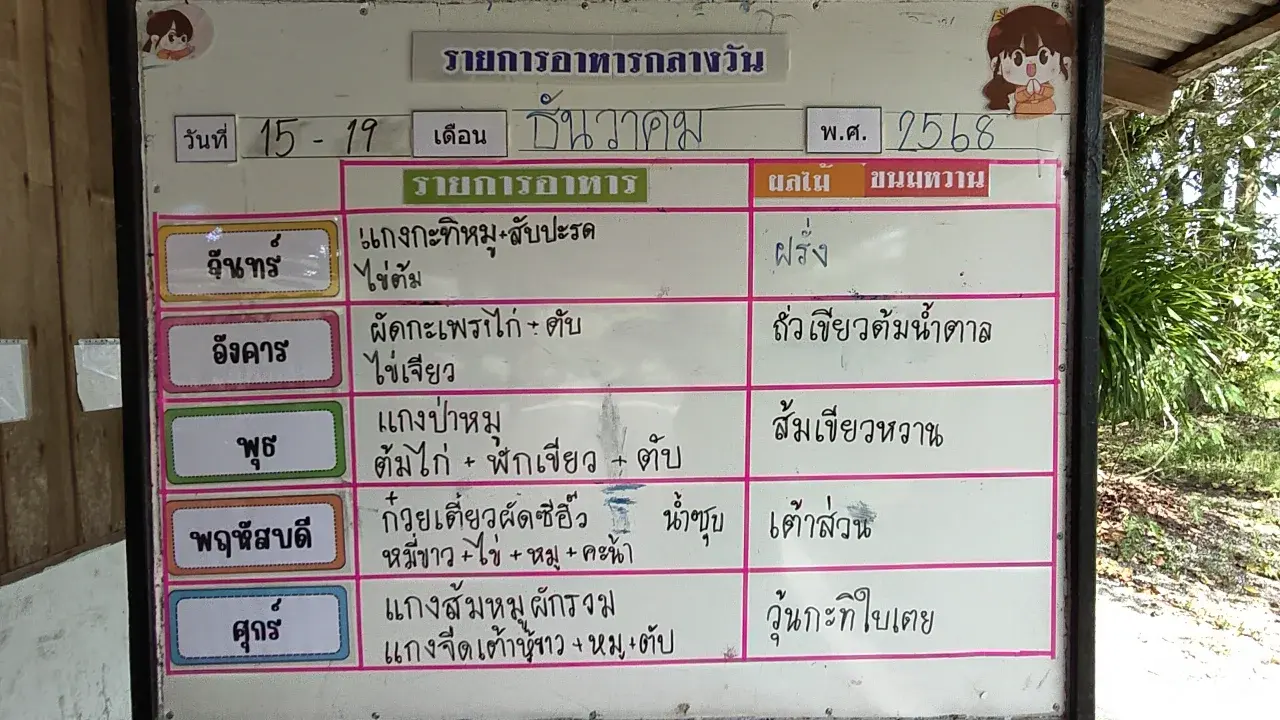 รายการอาหารกลางวัน
วันที่ 15 - 19 เดือน ธันวาคม พ.ศ. 2568
รายการอาหาร ผลไม้ ขนมหวาน
จันทร์ แกงกะทิหมู+สับปะรด ฝรั่ง
ไข่ต้ม
อังคาร ผัดกะเพราไก่ + ตับ ถั่วเขียวต้มน้ำตาล
ไข่เจียว
พุธ แกงป่าหมู ส้มเขียวหวาน
ต้มไก่ + ฟักเขียว + ตับ
พฤหัสบดี ก๋วยเตี๋ยวผัดซีอิ๊ว น้ำซุบ เต้าส่วน
หมี่ขาว+ไข่ + หมู + คะน้า
ศุกร์ แกงส้มหมูผักรวม วุ้นกะทิใบเตย
แกงจืดเต้าหู้ขาว + หมู+ตับ